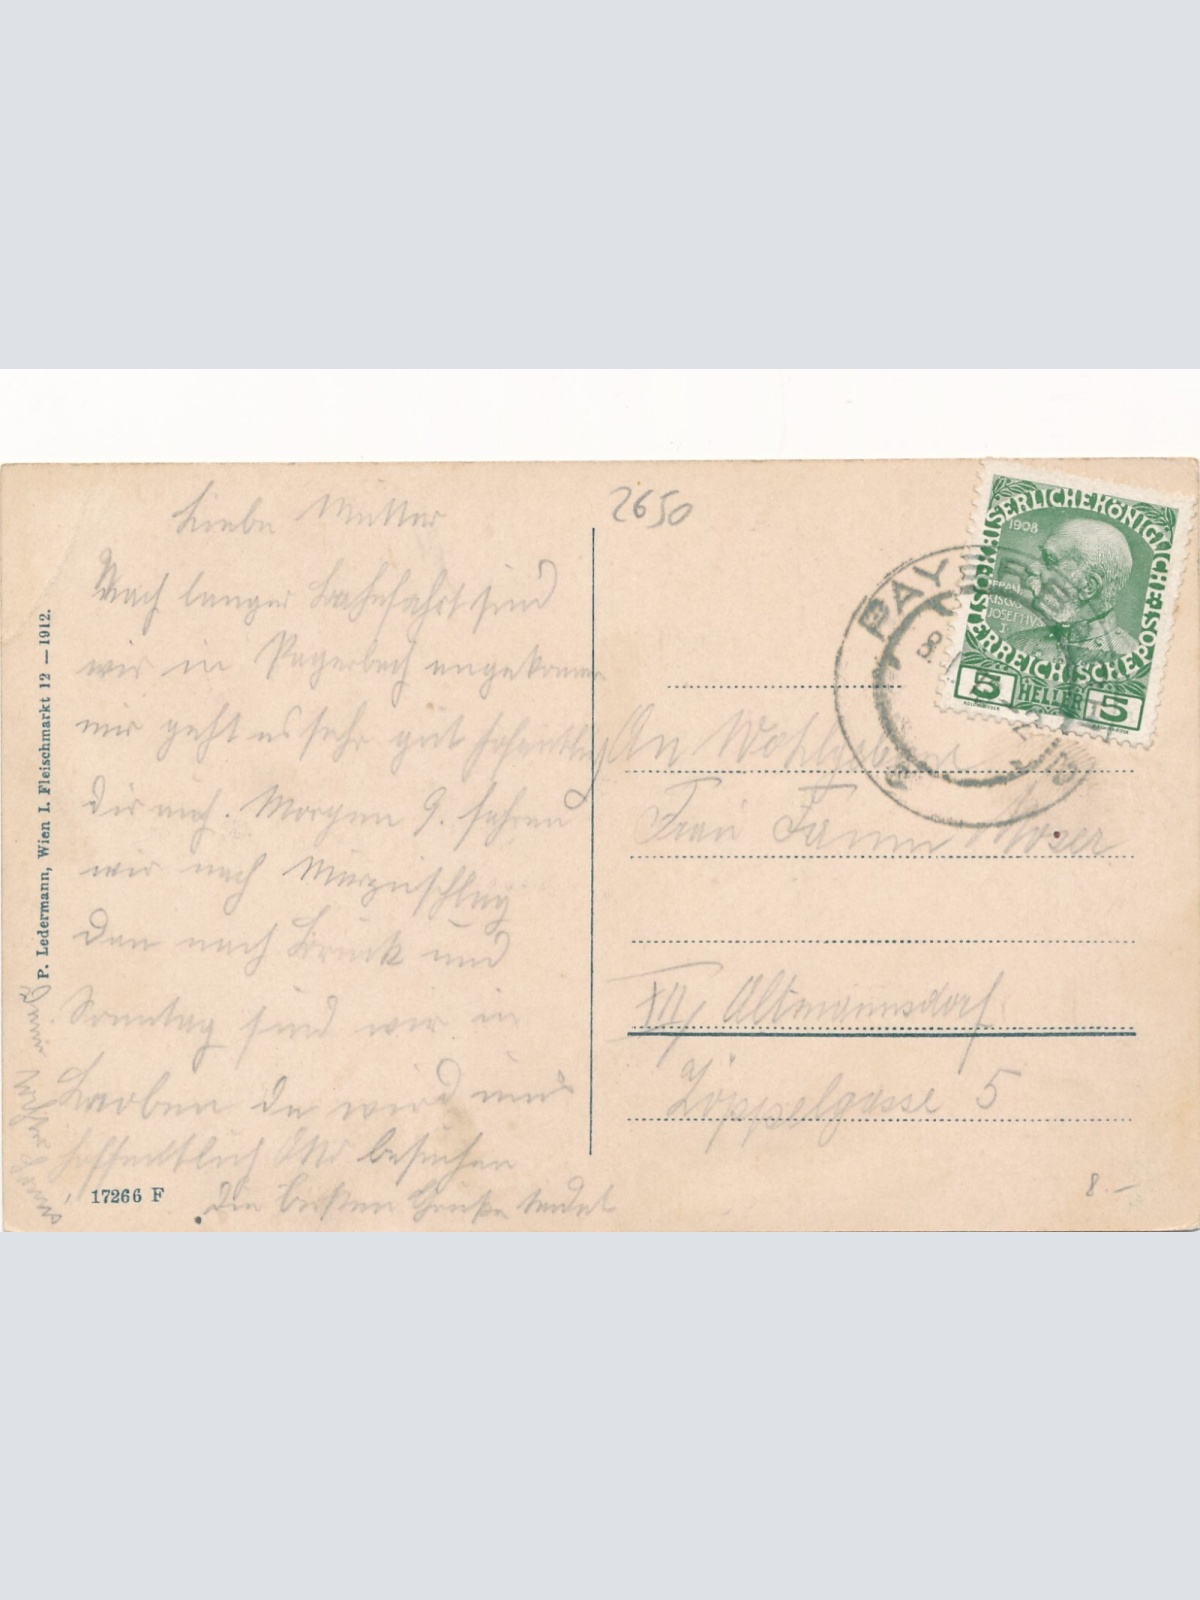 Liebe Mutter
Nach langer Bahnfahrt sind
wir in Payerbach angekommen
mir geht es sehr gut hoffentlich
dir auch. Morgen 9. fahren
wir nach Mürzzuschlag
dan nach Bruck und
Sonntag sind wir in
Leoben da wird uns
hoffentlich Otto besuchen
Die besten Grüße sendet
P. Ledermann, Wien I. Fleischmarkt 12 — 1912.
17266 F
2650
KAISERLICHE KÖNIGLICHE ÖSTERREICHISCHE POST
1908
FRAN
CISCVS
JOSEPHVS
I
5 HELLER 5
PAY
8.
An Wohlgeborene
Frau Fanni Moser
XII/ Altmannsdorf
Zöppelgasse 5
8.–